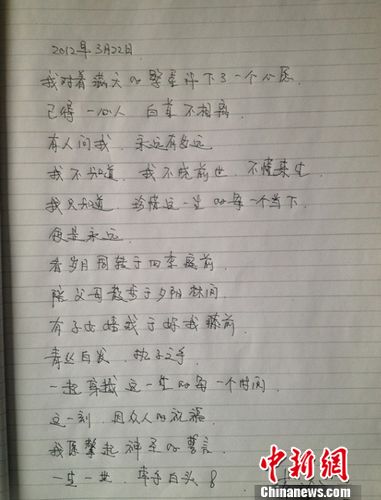 2012年3月22日
我对着满天的繁星许下了一个心愿
已得一心人 白首不相离
有人问我 永远有多远
我不知道 我不晓前世 不懂来生
我只知道 珍惜这一生的每一个当下
便是永远
看岁月周转于四季庭前
陪父母散步于夕阳林间
有子女嬉戏于你我膝前
青丝白发 执子之手
一起穿越这一生的每一个时间
这一刻 因众人的祝福
我愿擎起神圣的誓言
一生一世 牵手白头
中新网
Chinanews.com